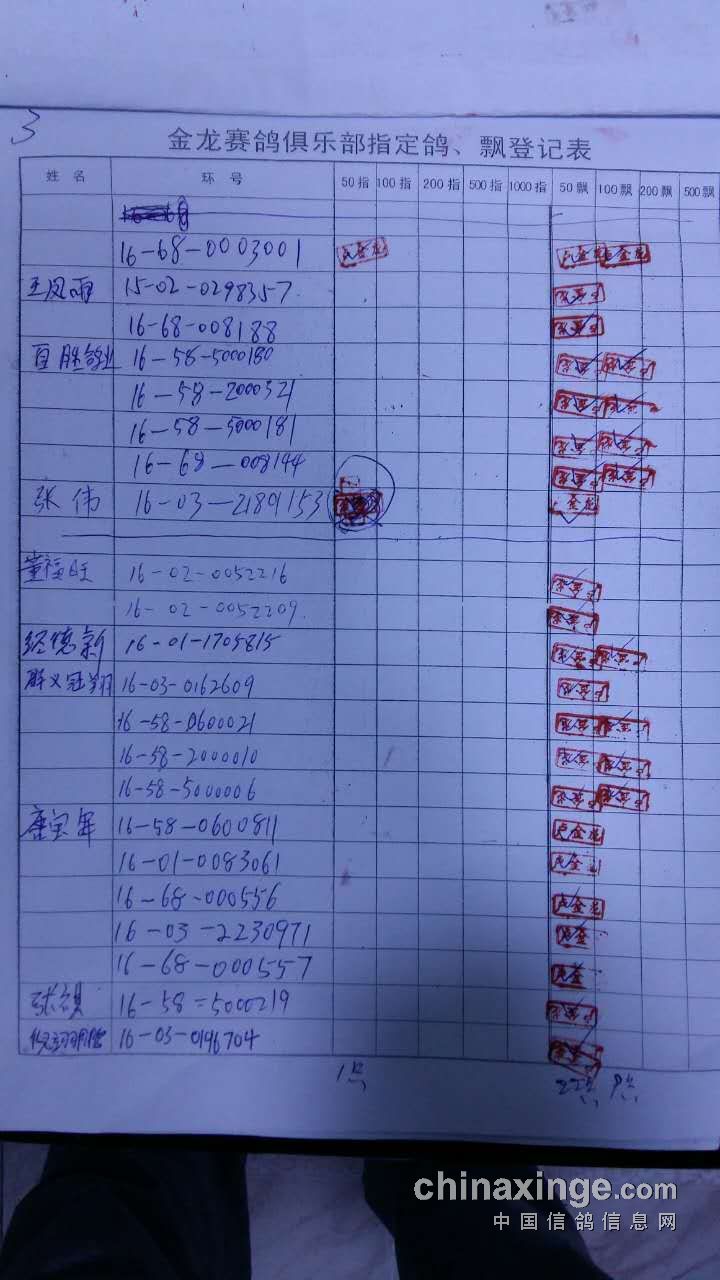 3
金龙赛鸽俱乐部指定鸽、飘登记表
姓 名 环 号 50指 100指 200指 500指 1000指 50飘 100飘 200飘 500飘
16-68-0003001
王凤雨 15-02-0298357
16-68-008188
百胜鸽业 16-58-5000180
16-58-2000321
16-58-5000181
16-68-008144
张伟 16-03-2189153
董福旺 16-02-0052216
16-02-0052209
16-01-1705815
群义冠翔 16-03-0162609
16-58-0600021
16-58-2000010
16-58-5000006
唐宝军 16-58-0600811
16-01-0083061
16-68-000556
16-03-2230971
16-68-000557
16-58-5000219
16-03-0146704
1点 22点 9点
chinaxinge.com
中国信鸽信息网